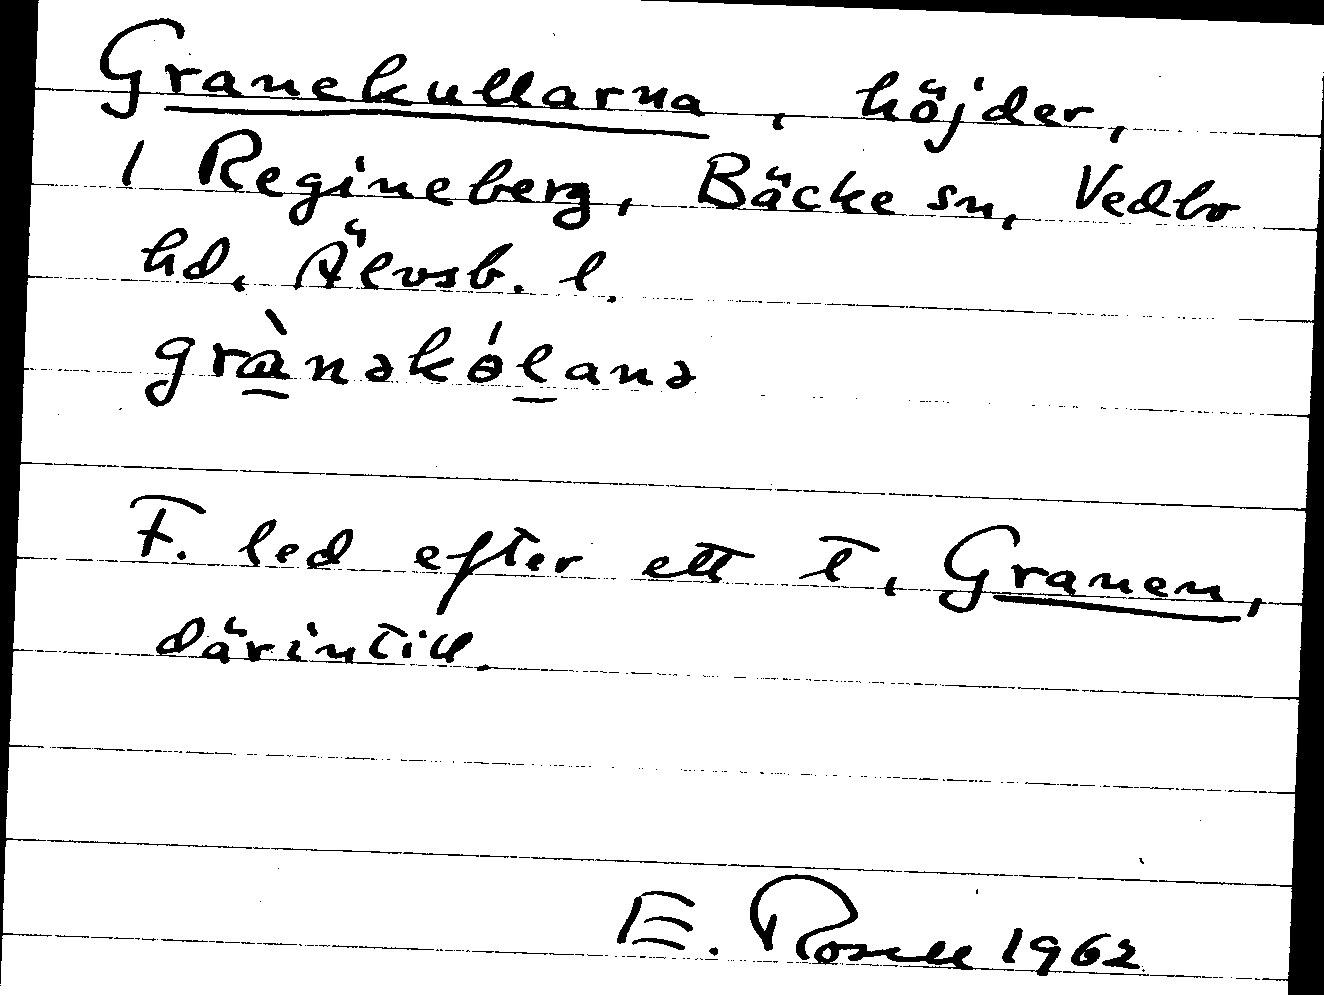 Granekullarna, höjder,
1 Regineberg, Bäcke sn, Vedbo
hd, Älvsb. l.
grànəkɵ́lanə
F. led efter ett t, Granen,
därintill.
E. Rosell 1962